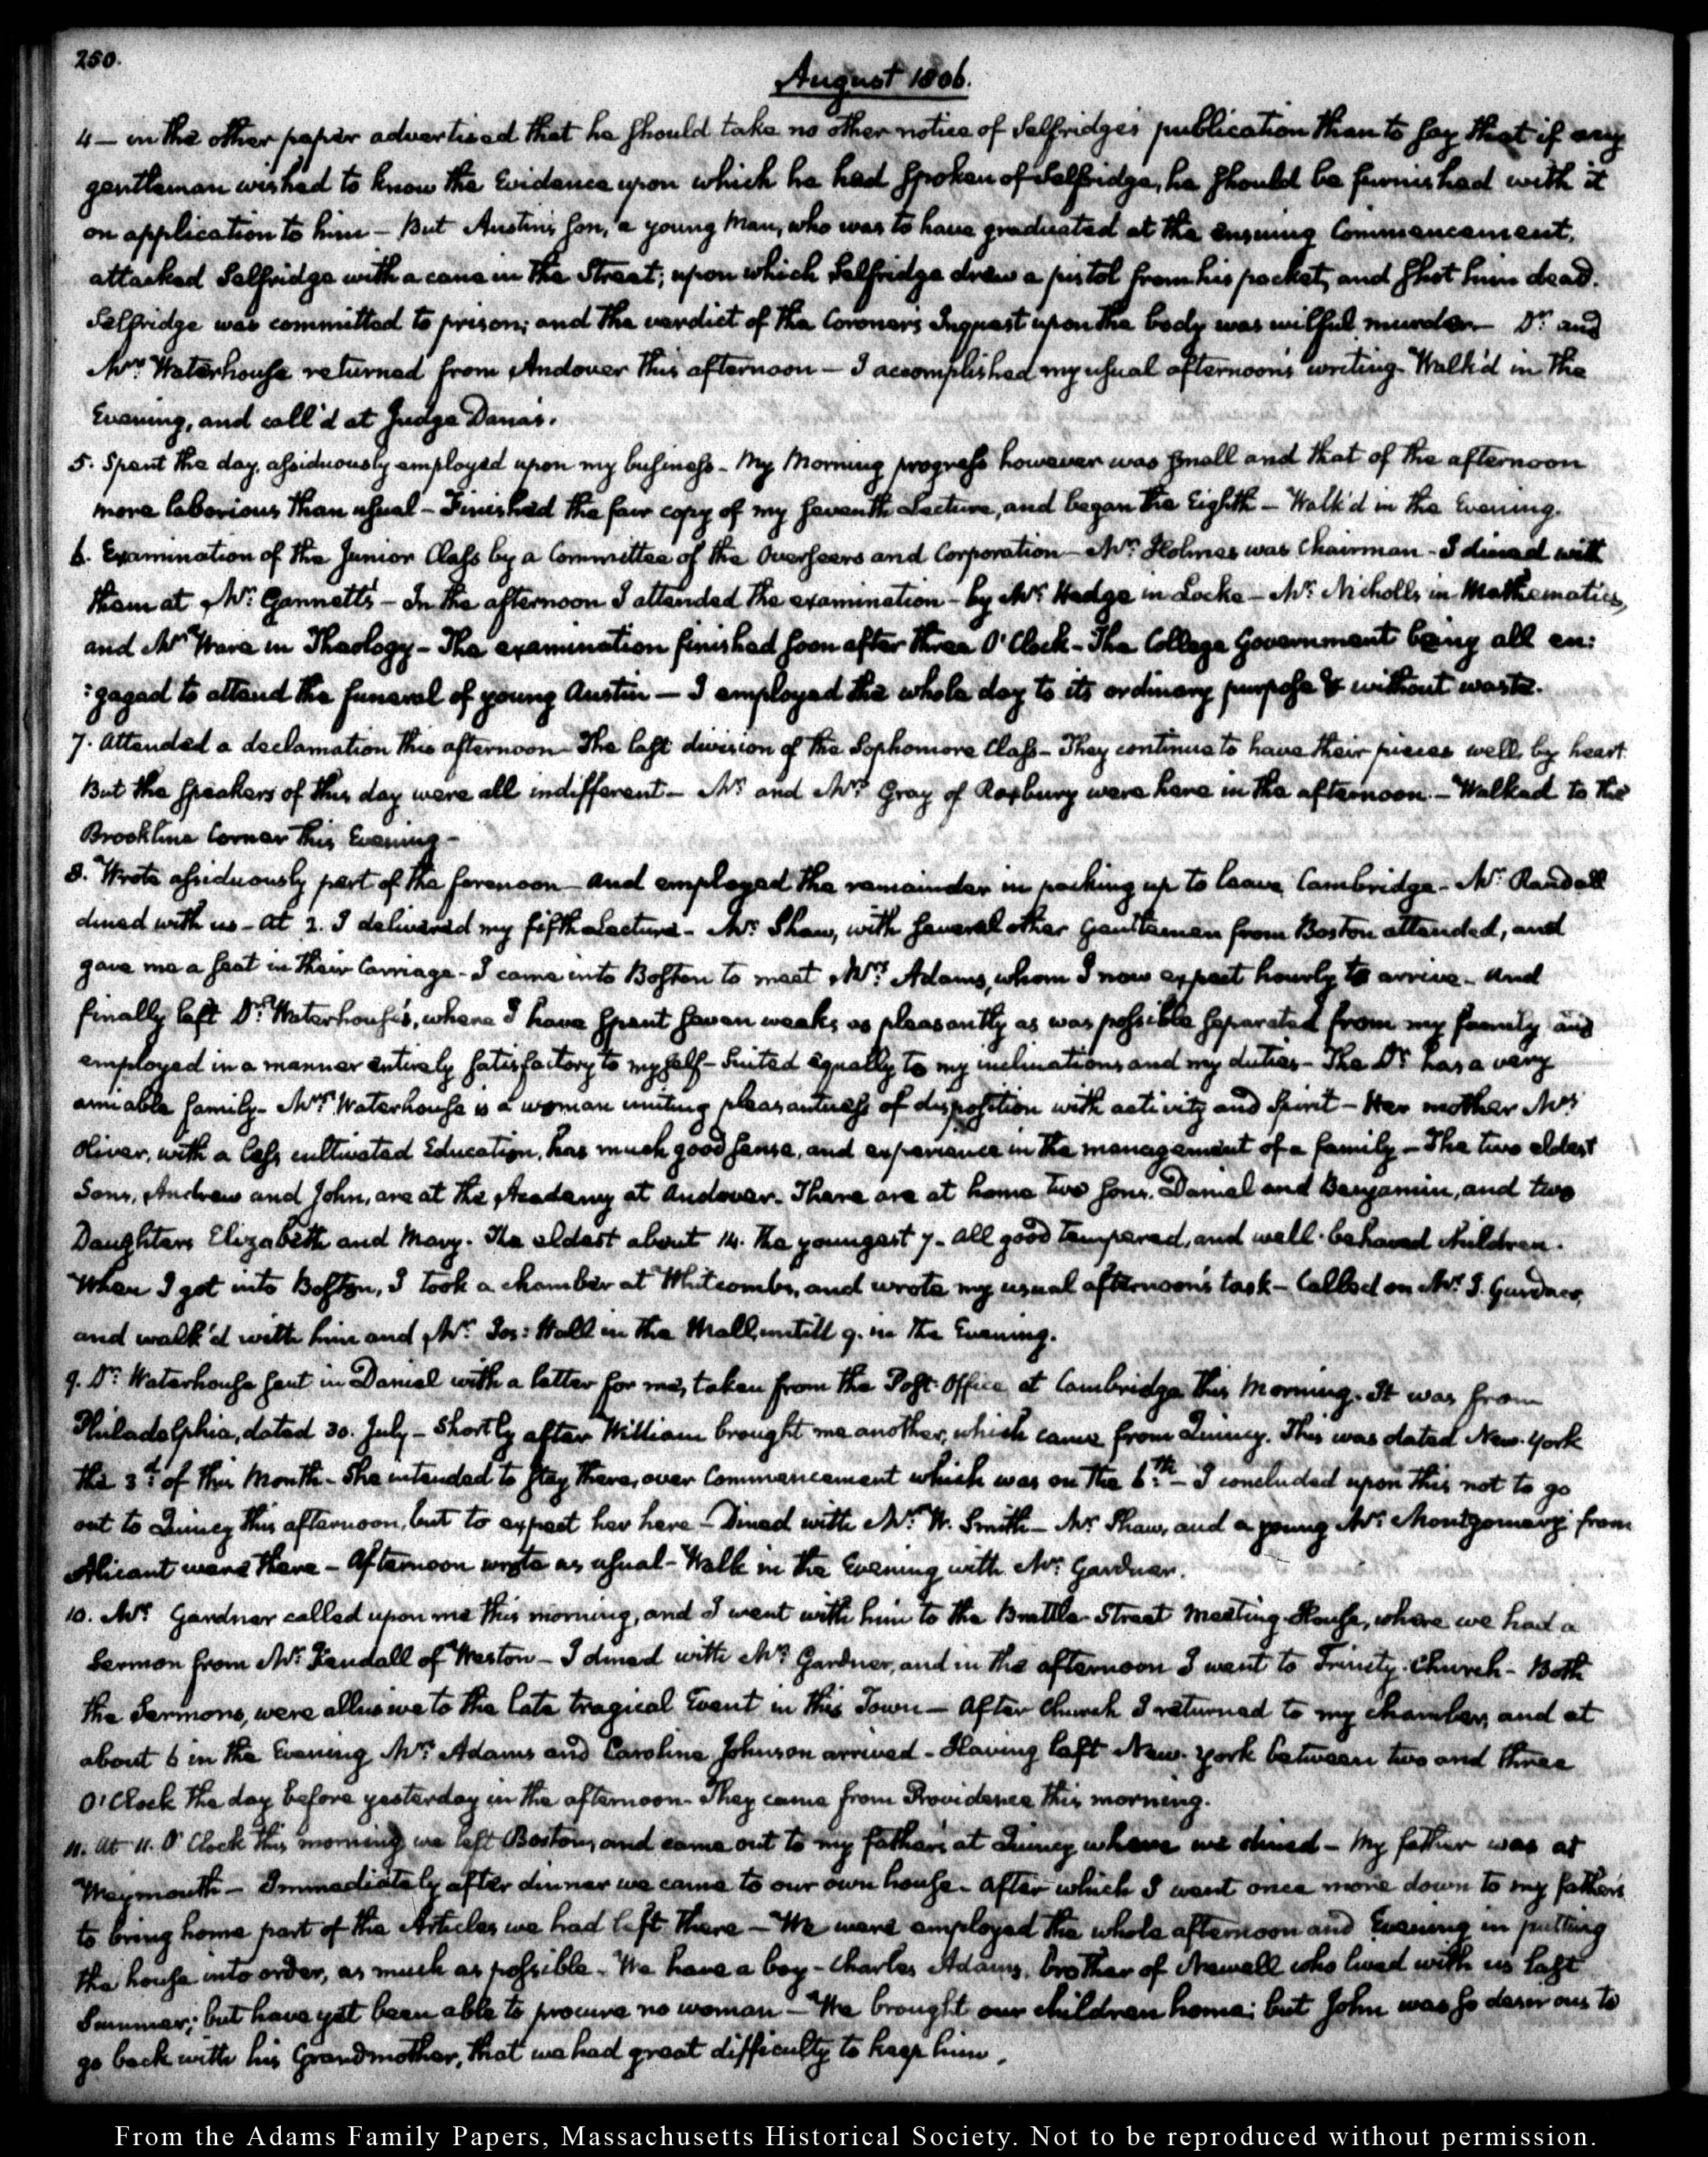 250.
August 1806.
4— in the other paper advertised that he should take no other notice of Selfridge's publication than to say that if any
gentleman wished to know the Evidence upon which he had spoken of Selfridge, he should be furnished with it
on application to him — But Austin's son, a young Man, who was to have graduated at the ensuing Commencement,
attacked Selfridge with a cane in the Street; upon which Selfridge drew a pistol from his pocket, and shot him dead.
Selfridge was committed to prison; and the verdict of the Coroner's Inquest upon the body was wilful murder— Dr. and
Mrs. Waterhouse returned from Andover this afternoon — I accomplished my usual afternoon's writing— Walk'd in the
Evening, and call'd at Judge Dana's.
5. Spent the day, assiduously employed upon my business — My Morning progress however was small and that of the afternoon
more laborious than usual — Finished the fair copy of my seventh Lecture, and began the Eighth — Walk'd in the Evening.
6. Examination of the Junior Class by a Committee of the Overseers and Corporation — Mr. Holmes was Chairman — I dined with
them at Mr. Gannett's — In the afternoon I attended the examination — by Mr. Hedge in Locke — Mr. Nicholls in Mathematics,
and Mr. Ware in Theology — The examination finished soon after three O'Clock — The College Government being all en:
:gaged to attend the funeral of young Austin — I employed the whole day to its ordinary purpose & without waste.
7. Attended a declamation this afternoon — The last division of the Sophomore Class — They continue to have their pieces well by heart.
But the speakers of this day were all indifferent — Mr. and Mrs. Gray of Roxbury were here in the afternoon. — Walked to the
Brookline Corner this Evening —
8. Wrote assiduously part of the forenoon — and employed the remainder in packing up to leave Cambridge — Mr. Randall
dined with us — At 2. I delivered my fifth Lecture — Mr. Shaw, with several other Gentlemen from Boston attended, and
gave me a seat in their Carriage — I came into Boston to meet Mrs. Adams, whom I now expect hourly to arrive — and
finally left Dr. Waterhouse's, where I have spent seven weeks as pleasantly as was possible separated from my family and
employed in a manner entirely satisfactory to myself — Suited equally to my inclinations and my duties — The Dr. has a very
amiable family — Mrs. Waterhouse is a woman uniting pleasantness of disposition with activity and Spirit — Her mother Mrs.
Oliver, with a less cultivated Education, has much good sense, and experience in the management of a family — The two eldest
Sons, Andrew and John, are at the Academy at Andover. There are at home two sons, Daniel and Benjamin, and two
Daughters Elizabeth and Mary. The eldest about 14. the youngest 7 — all good tempered, and well-behaved children.
When I got into Boston, I took a chamber at Whitcomb's, and wrote my usual afternoon's task — Called on Mr. J. Gardner,
and walk'd with him and Mr. Jos: Hall in the Mall, untill 9. in the Evening.
9. Dr. Waterhouse sent in Daniel with a letter for me, taken from the Post-Office at Cambridge this Morning. It was from
Philadelphia, dated 30. July — Shortly after William brought me another, which came from Quincy. This was dated New-York
the 3d. of this Month — She intended to stay there, over Commencement which was on the 6th. — I concluded upon this not to go
out to Quincy this afternoon, but to expect her here — Dined with Mr. W. Smith — Mr. Shaw, and a young Mr. Montgomery from
Alicant were there — Afternoon wrote as usual — Walk in the Evening with Mr. Gardner.
10. Mr. Gardner called upon me this morning, and I went with him to the Brattle-Street Meeting-House, where we had a
Sermon from Mr. Kendall of Weston — I dined with Mr. Gardner, and in the afternoon I went to Trinity-Church — Both
the Sermons, were allusive to the late tragical Event in this Town — After Church I returned to my chamber, and at
about 6 in the Evening Mrs. Adams and Caroline Johnson arrived — Having left New-York between two and three
O'Clock the day before yesterday in the afternoon — They came from Providence this morning.
11. At 11. O'Clock this morning we left Boston, and came out to my father's at Quincy where we dined — My father was at
Weymouth — Immediately after dinner we came to our own house — After which I went once more down to my father's
to bring home part of the Articles we had left there — We were employed the whole afternoon and Evening in putting
the house into order, as much as possible — We have a boy — Charles Adams, brother of Newell who lived with us last
Summer; but have yet been able to procure no woman — We brought our children home; but John was so desirous to
go back with his Grandmother, that we had great difficulty to keep him.
From the Adams Family Papers, Massachusetts Historical Society. Not to be reproduced without permission.